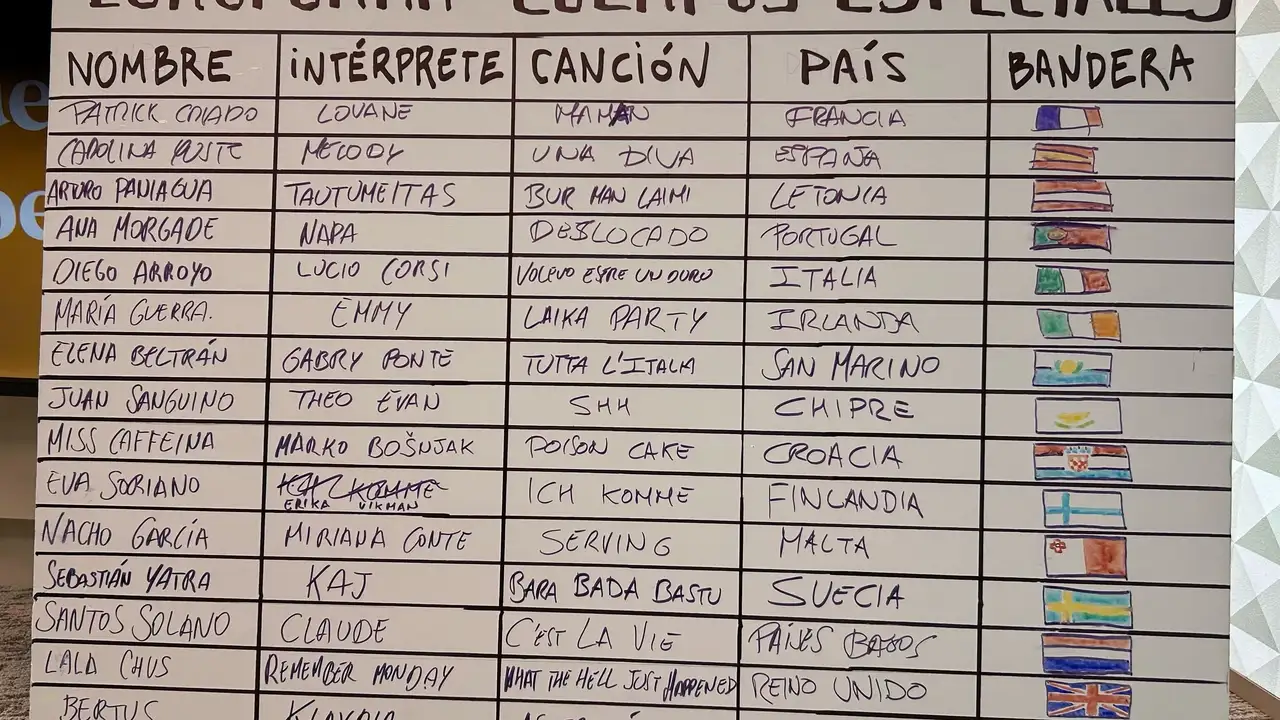 CUERPOS ESPECIALES
NOMBRE INTÉRPRETE CANCIÓN PAÍS BANDERA
PATRICK CRIADO LOUANE MAMAN FRANCIA
CAROLINA YUSTE MELODY UNA DIVA ESPAÑA
ARTURO PANIAGUA TAUTUMEITAS BUR MAN LAIMI LETONIA
ANA MORGADE NAPA DESLOCADO PORTUGAL
DIEGO ARROYO LUCIO CORSI VOLEVO ESSRE UN DURO ITALIA
MARÍA GUERRA. EMMY LAIKA PARTY IRLANDA
ELENA BELTRÁN GABRY PONTE TUTTA L'ITALIA SAN MARINO
JUAN SANGUINO THEO EVAN SHH CHIPRE
MISS CAFFEINA MARKO BOŠNJAK POISON CAKE CROACIA
EVA SORIANO ERIKA VIKMAN ICH KOMME FINLANDIA
NACHO GARCÍA MIRIANA CONTE SERVING MALTA
SEBASTIÁN YATRA KAJ BARA BADA BASTU SUECIA
SANTOS SOLANO CLAUDE C'EST LA VIE PAÍSES BAJOS
LALA CHUS REMEMBER MONDAY WHAT THE HELL JUST HAPPENED REINO UNIDO
BERTUS KLAVDIA